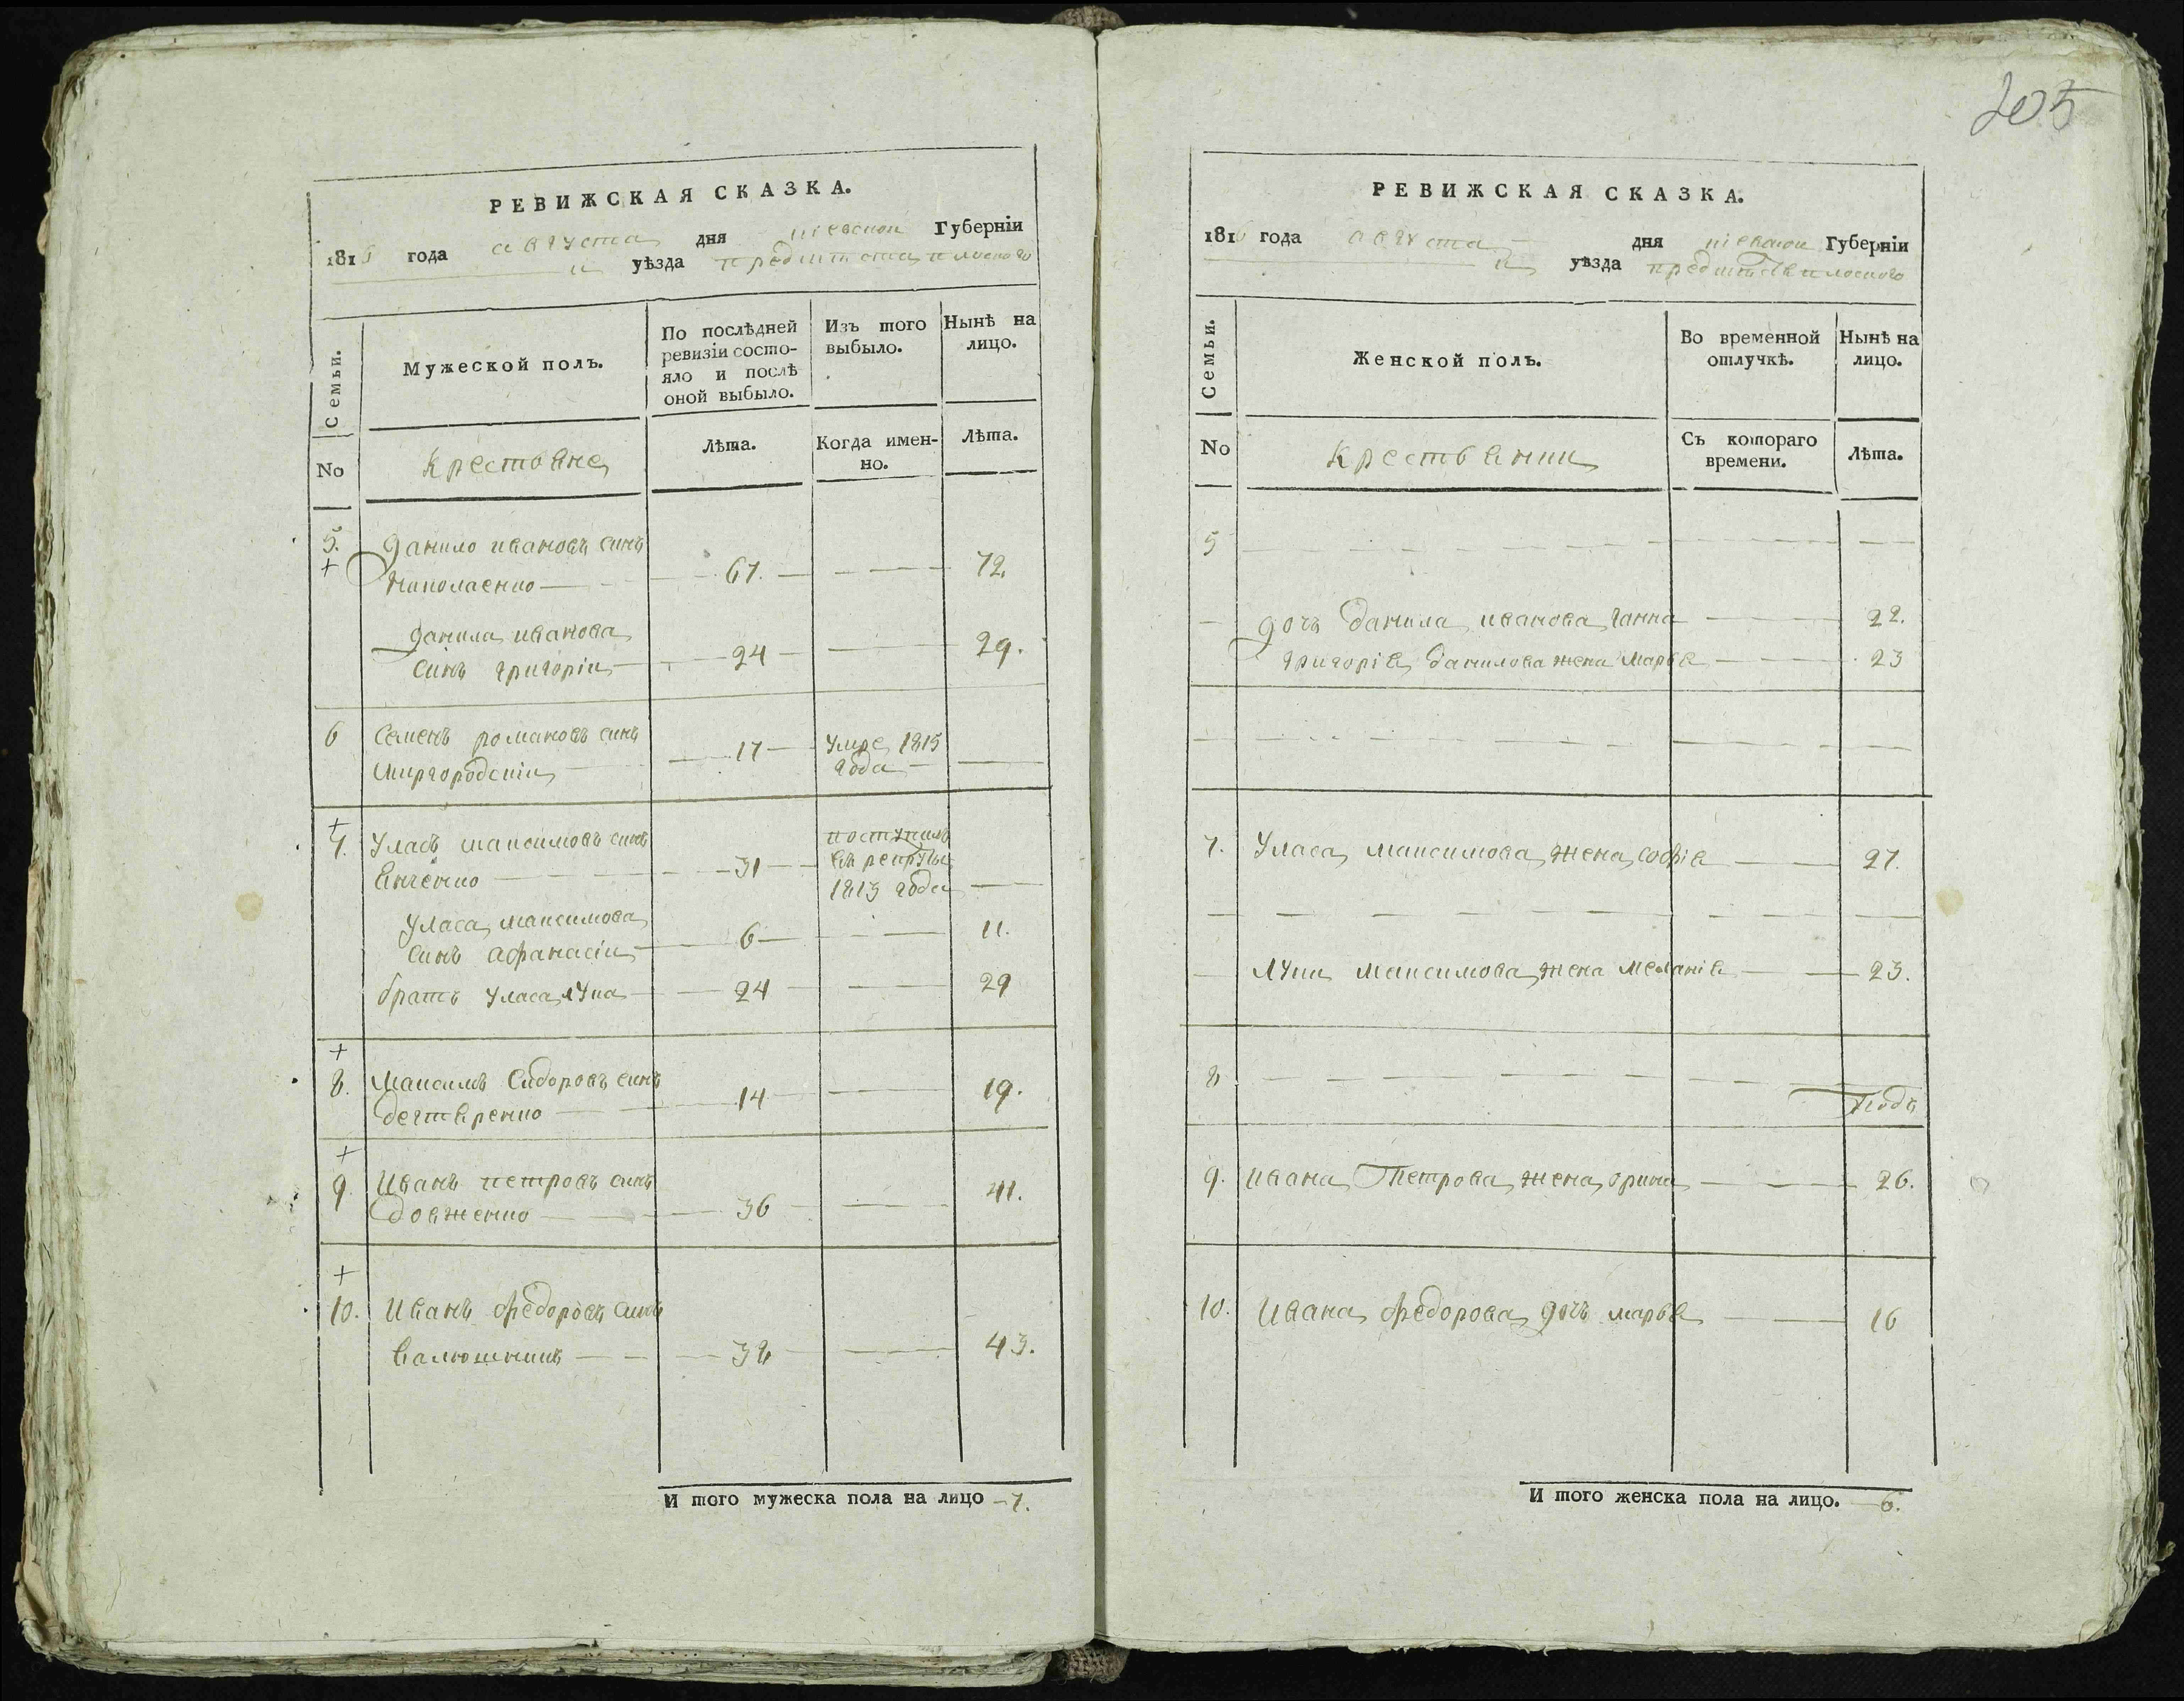 205
РЕВИЖСКАЯ СКАЗКА.
181 года августа дня кіевской Губерніи
и уѣзда предмѣста плоского
Семьи.
Мужеской полъ.
По послѣдней ревизіи состо-
яло и послѣ оной выбыло.
Изъ того выбыло.
Нынѣ на лицо.
No
Крестьяне
Лѣта.
Когда имен-
но.
Лѣта.
5. Данило ивановъ синъ
Николаенко 67. 72.
Данила иванова
синъ григоріи 24 29.
6 Семенъ романовъ синъ
миргородскіи 17 умре 1815
года
7. Уласъ максимовъ синъ
31 поступилъ
въ рекруты
1813 года
Уласа максимова
синъ афанасіи 6 11.
братъ Уласа лука 24 29
8. Максимъ Сидоровъ синъ
дегтяренко 14 19.
9. Иванъ петровъ синъ
довженко 36 41.
10. Иванъ федоровъ синъ
38 43.
И того мужеска пола на лицо 7.
РЕВИЖСКАЯ СКАЗКА.
181 года августа дня кіевской Губерніи
и уѣзда плоского
Семьи.
Женской полъ.
Во временной отлучкѣ.
Нынѣ на лицо.
No
Крестьянки
Съ котораго времени.
Лѣта.
5
дочъ Данила иванова ганна 22.
григорія Данилова жена марья 23
7. Уласа максимова жена софія 27.
Луки максимова жена меланія 23.
8
9. Ивана Петрова жена орина 26.
10. Ивана федорова дочъ марья 16
И того женска пола на лицо. 6.